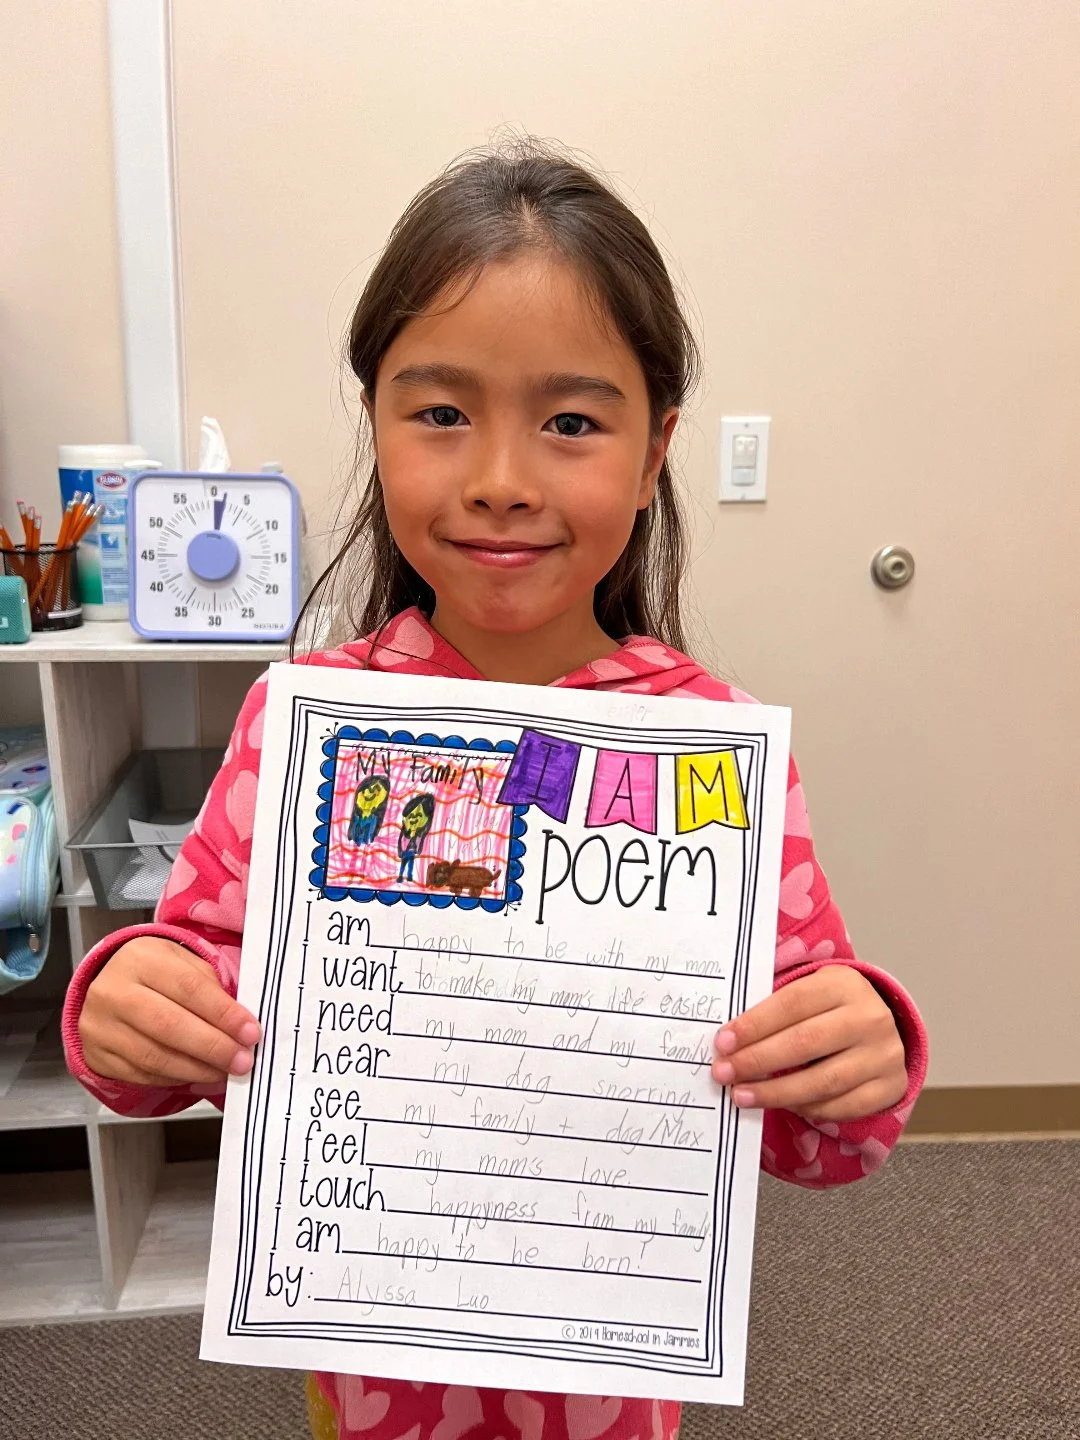 CLOROX
55 0 5
50 10
45 15
40 20
35 25
30
SECURA
My Family
I AM
poem
I am happy to be with my mom.
I want to make my mom's life easier.
I need my mom and my family.
I hear my dog snorring.
I see my family + dog/Max
I feel my mom's love.
I touch happyness from my family.
I am happy to be born!
by: Alyssa Luo
© 2019 Homeschool in Jammies